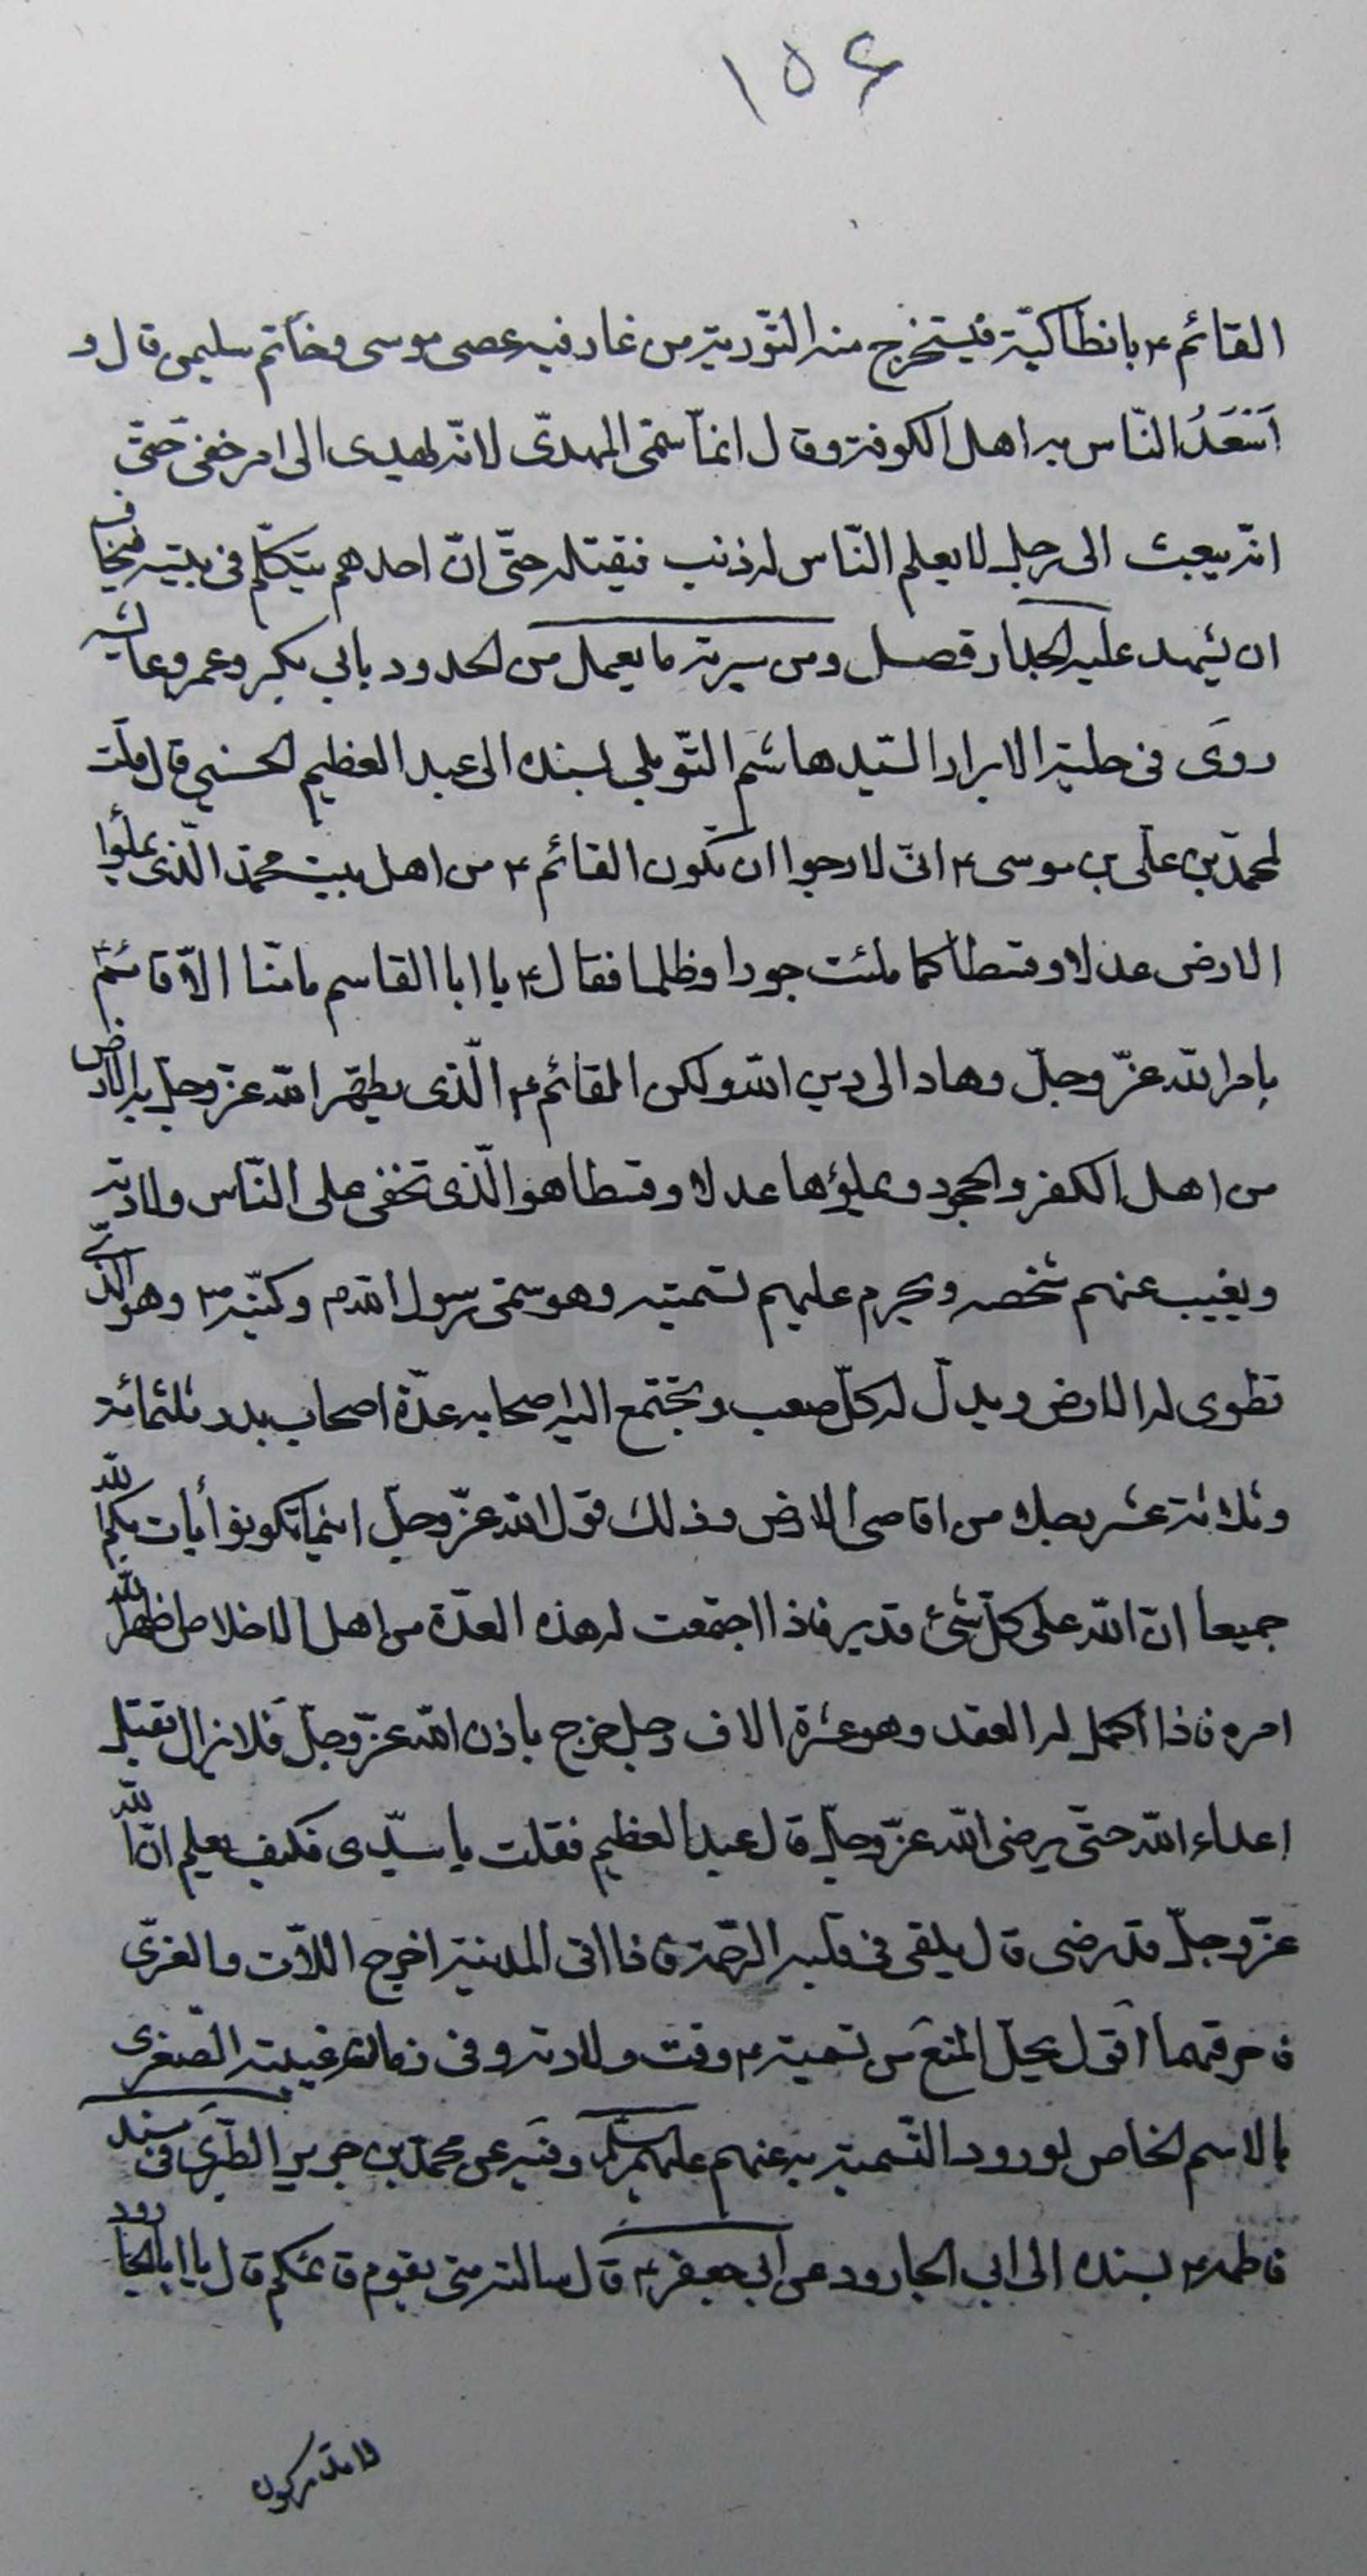 ١٥٤
القائم ع بانطاكيّة فيستخرج منه التّورية من غار فيه عصى موسى وخاتم سليمن قال و
اَسْعَدُ النّاس به اهل الكوفة وقال انما سمّى المهدىّ لانّه يهدى الى امر خفىّ حتّى
انّه يبعث الى رجل لا يعلم النّاس له ذنب فيقتله حتّى انّ احدهم يتكلّم فى بيته فيخاف
ان يشهد عليه الجدار فصل ومن سيرته ما يعمل من الحدود بابي بكر وعمر وعايشه
روى فى حلية الابرار السّيد هاشم التّوبلي بسنده الى عبد العظيم الحسني قال قلت
لمحمّد بن علىّ بن موسى ع انّى لارجوا ان تكون القائم ع من اهل بيت محمّد الّذى يملؤا
الارض عدلا وقسطا كما ملئت جورا وظلما فقال ع يا ابا القاسم ما منّا الاّ قائم
بامر الله عزّ وجلّ وهاد الى دين الله ولكن القائم ع الّذى يطهّر الله عزّ وجلّ به الارض
من اهل الكفر والجحود ويملؤها عدلا وقسطا هو الّذى تخفى على النّاس ولادته
ويغيب عنهم شخصه ويحرم عليهم تسميته وهو سمّى رسول الله ص وكنيّه ص وهو الّذى
تطوى له الارض ويذلّ له كلّ صعب ويجتمع اليه اصحابه عدّة اصحاب بدر ثلثمائة
وثلاثة عشر رجلا من اقاصى الارض وذلك قول الله عزّ وجلّ اينما تكونوا يأت بكم الله
جميعا انّ الله على كلّ شىء قدير فاذا اجتمعت له هذه العدّة من اهل الاخلاص اظهر الله
امره فاذا اكمل له العقد وهو عشرة الاف رجل خرج باذن الله عزّ وجلّ فلا يزال يقتل
اعداء الله حتّى يرضى الله عزّ وجلّ قال عبد العظيم فقلت يا سيّدى فكيف يعلم انّ الله
عزّ وجلّ قد رضى قال يلقى فى قلبه الرّحمة فاذا اتى المدينة اخرج اللاّت والعزّى
فاحرقهما اقول يحمل المنع من تسميته ع وقت ولادته وفى زمان غيبته الصّغرى
بالاسم الخاص لورود التّسمية به عنهم عليهم السلام وفيه عن محمّد بن جرير الطّبرى فى مسند
فاطمه ع بسنده الى ابى الجارود عن ابى جعفر ع قال سالته متى يقوم قائمكم قال يا ابا الجارود
لا تدركون